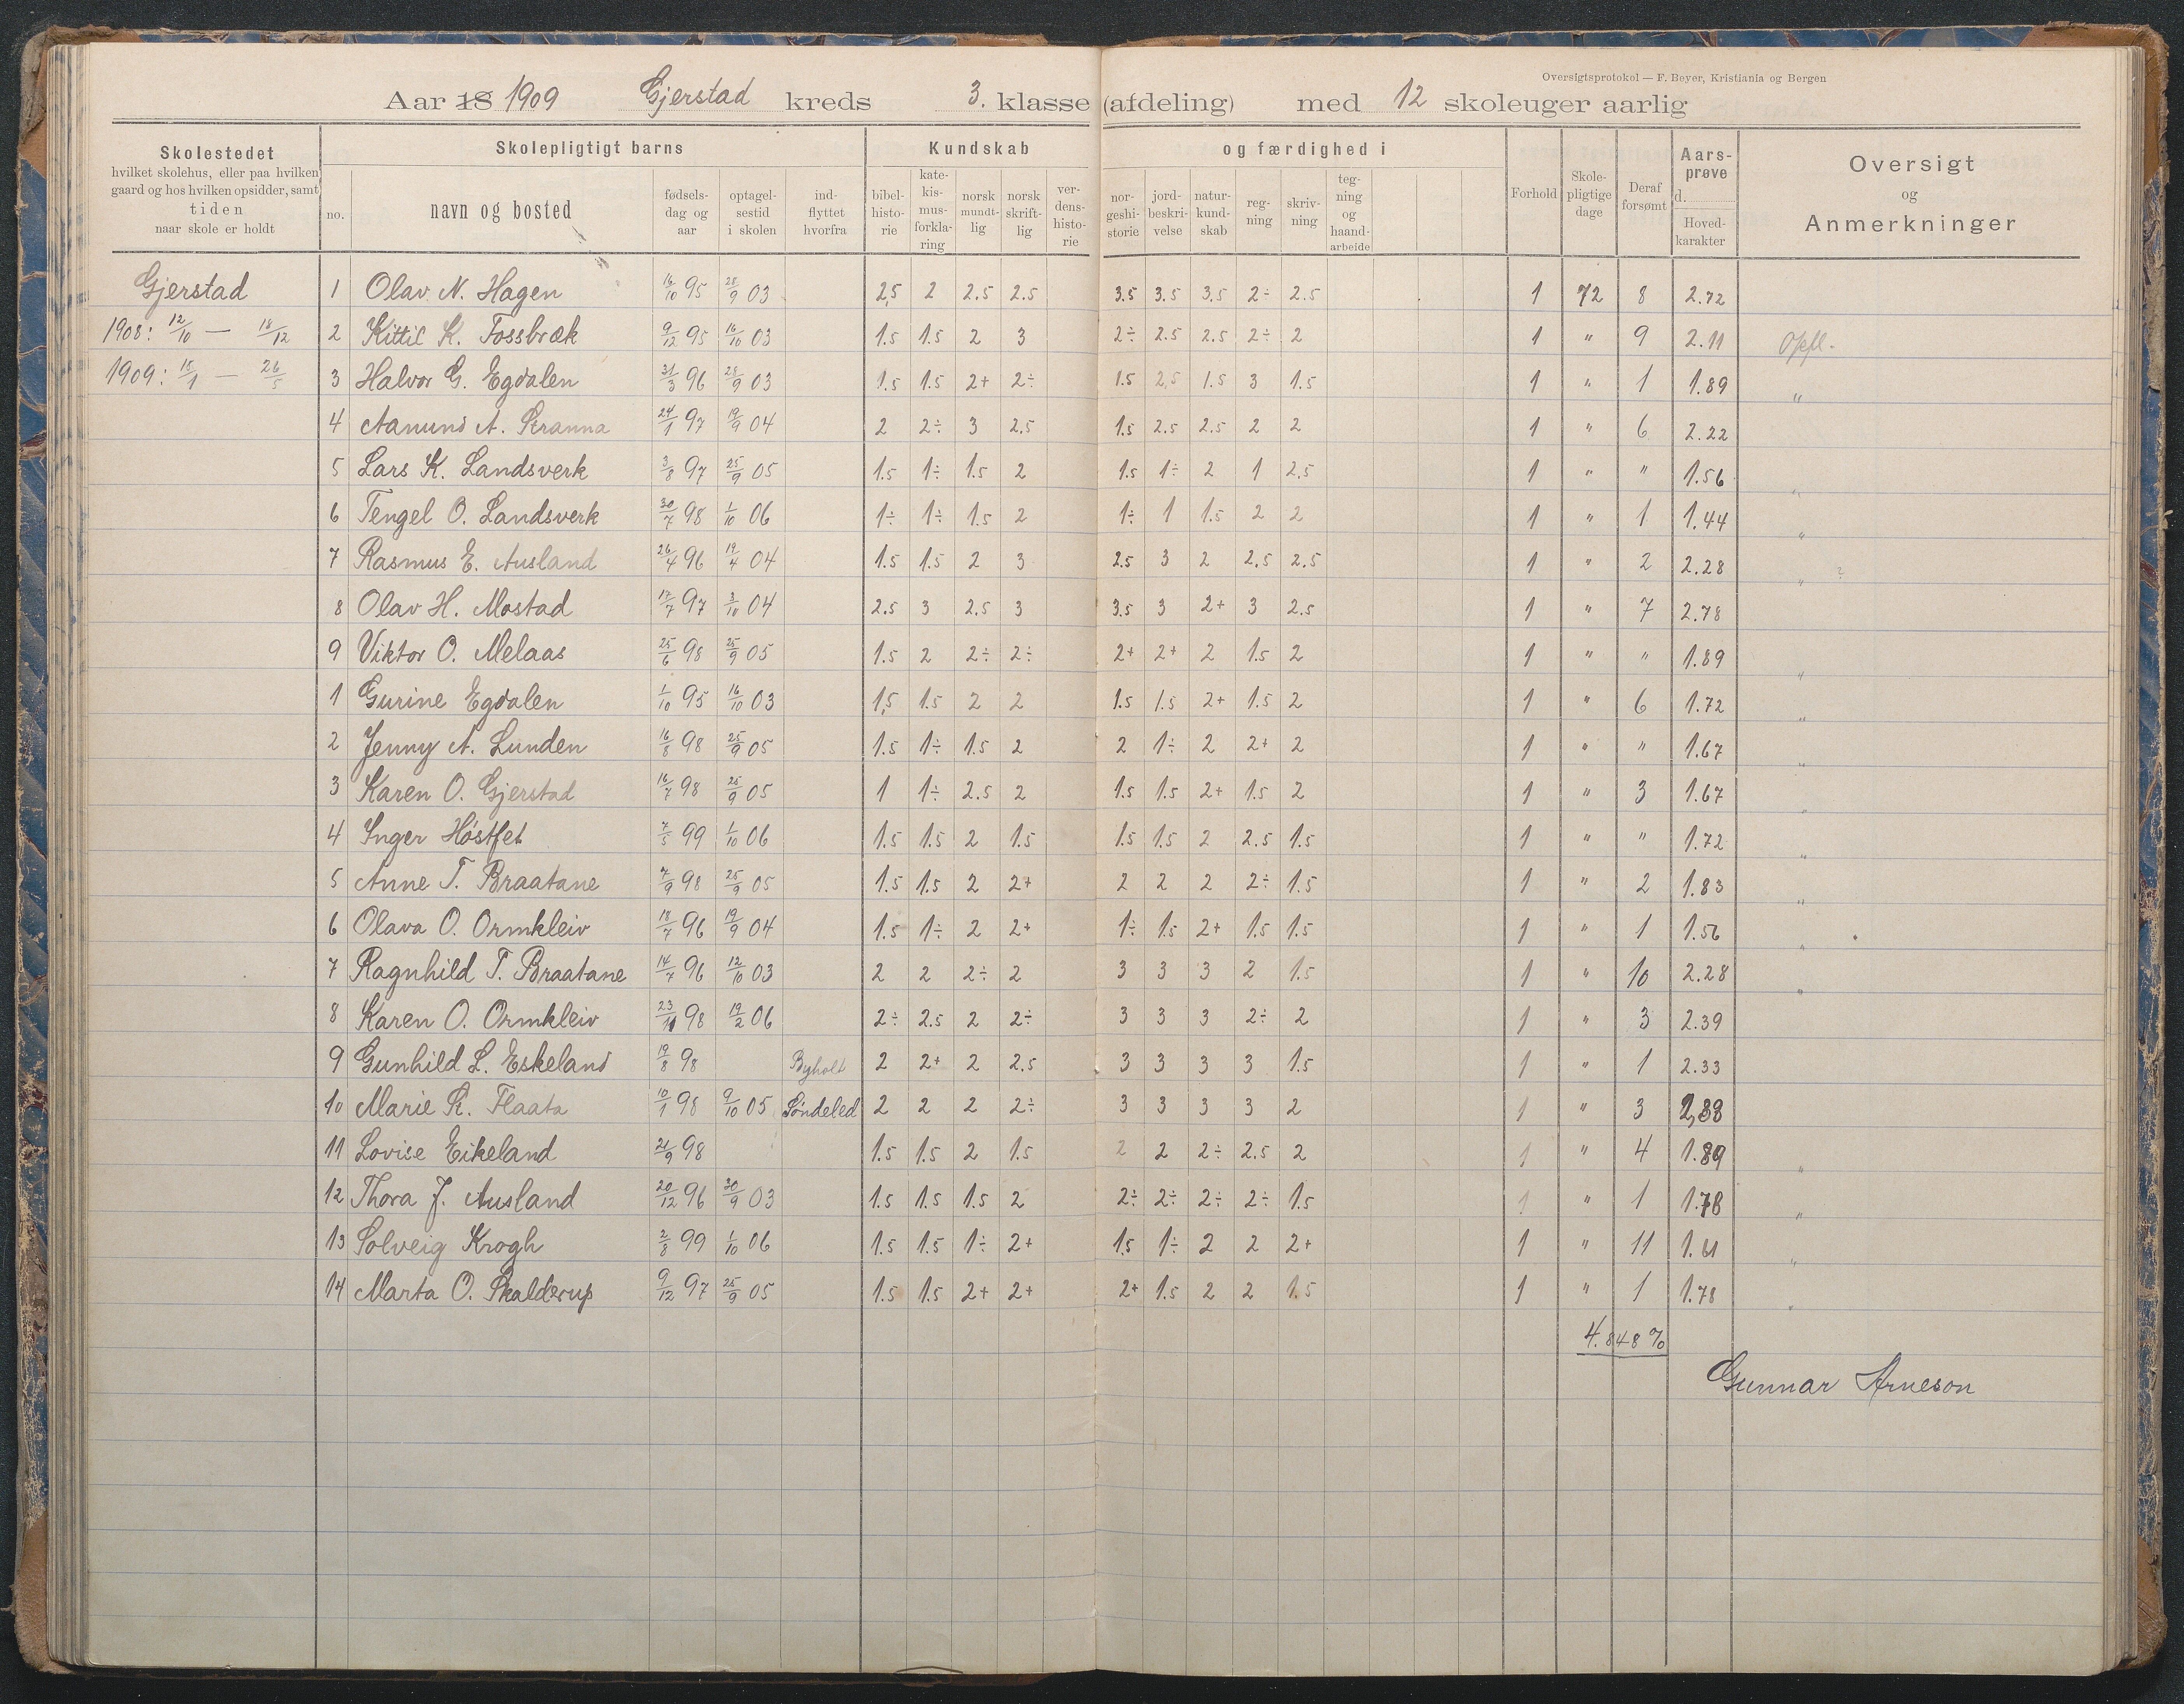 Oversigtsprotokol — F. Beyer, Kristiania og Bergen
Aar 18 1909 Gjerstad kreds 3. klasse (afdeling) med 12 skoleuger aarlig
Skolestedet hvilket skolehus, eller paa hvilken gaard og hos hvilken opsidder, samt tiden naar skole er holdt
Skolepligtigt barns
no. navn og bosted fødselsdag og aar optagelsestid i skolen indflyttet hvorfra
Kundskab og færdighed i
bibelhistorie katekismusforklaring norsk mundtlig norsk skriftlig verdenshistorie norgeshistorie jordbeskrivelse naturkundskab regning skrivning tegning og haandarbeide
Forhold Skolepligtige dage Deraf forsømt Aarsprøve d. Hovedkarakter
Oversigt og Anmerkninger
Gjerstad 1 Olav N. Hagen 16/10 95 28/9 03 2,5 2 2.5 2.5 3.5 3.5 3.5 2÷ 2.5 1 72 8 2.72
1908: 12/10 — 18/12 2 Kittil K. Fossbræk 9/12 95 16/10 03 1.5 1.5 2 3 2÷ 2.5 2.5 2÷ 2 1 " 9 2.11 Opfl.
1909: 15/1 — 26/5 3 Halvor G. Egdalen 31/3 96 28/9 03 1.5 1.5 2+ 2÷ 1.5 2,5 1.5 3 1.5 1 " 1 1.89 "
4 Aanund A. Stranna 24/1 97 19/9 04 2 2÷ 3 2.5 1.5 2.5 2.5 2 2 1 " 6 2.22
5 Lars K. Landsverk 3/8 97 25/9 05 1.5 1÷ 1.5 2 1.5 1÷ 2 1 2.5 1 " " 1.56 "
6 Tengel O. Landsverk 30/7 98 1/10 06 1÷ 1÷ 1.5 2 1÷ 1 1.5 2 2 1 " 1 1.44 "
7 Rasmus E. Ausland 26/4 96 19/4 04 1.5 1.5 2 3 2.5 3 2 2.5 2.5 1 " 2 2.28 " ?
8 Olav H. Mostad 17/7 97 3/10 04 2.5 3 2.5 3 3.5 3 2+ 3 2.5 1 " 7 2.78
9 Viktor O. Melaas 25/6 98 25/9 05 1.5 2 2÷ 2÷ 2+ 2+ 2 1.5 2 1 " " 1.89 "
1 Gurine Egdalen 1/10 95 16/10 03 1,5 1.5 2 2 1.5 1.5 2+ 1.5 2 1 " 6 1.72 "
2 Jenny A. Lunden 16/8 98 25/9 05 1.5 1÷ 1.5 2 2 1÷ 2 2+ 2 1 " " 1.67 "
3 Karen O. Gjerstad 16/7 98 25/9 05 1 1÷ 2.5 2 1.5 1.5 2+ 1.5 2 1 " 3 1.67 "
4 Inger Høstfet 7/5 99 1/10 06 1.5 1.5 2 1.5 1.5 1.5 2 2.5 1.5 1 " " 1.72 "
5 Anne T. Braatane 7/9 98 25/9 05 1.5 1.5 2 2+ 2 2 2 2÷ 1.5 1 " 2 1.83 "
6 Olava O. Ormkleiv 18/7 96 19/9 04 1.5 1÷ 2 2+ 1÷ 1.5 2+ 1.5 1.5 1 " 1 1.56 "
7 Ragnhild T. Braatane 14/7 96 12/10 03 2 2 2÷ 2 3 3 3 2 1.5 1 " 10 2.28 "
8 Karen O. Ormkleiv 23/11 98 19/2 06 2÷ 2.5 2 2÷ 3 3 3 2÷ 2 1 " 3 2.39
9 Gunhild L. Eskeland 19/8 98 Byholt 2 2+ 2 2.5 3 3 3 3 1.5 1 " 1 2.33
10 Marie K. Flaata 10/1 98 9/10 05 Søndeled 2 2 2 2÷ 3 3 3 3 2 1 " 3 2,38
11 Lovise Eikeland 21/9 98 1.5 1.5 2 1.5 2 2 2÷ 2.5 2 1 " 4 1.89 "
12 Thora J. Ausland 20/12 96 30/9 03 1.5 1.5 1.5 2 2÷ 2÷ 2÷ 2÷ 1.5 1 " 1 1.78 "
13 Solveig Krogh 2/8 99 1/10 06 1.5 1.5 1÷ 2+ 1.5 1÷ 2 2 2+ 1 " 11 1.61 "
14 Marta O. Skalderup 9/12 97 25/9 05 1.5 1.5 2+ 2+ 2+ 1.5 2 2 1.5 1 " 1 1.78 "
4.848 %
Gunnar Arneson